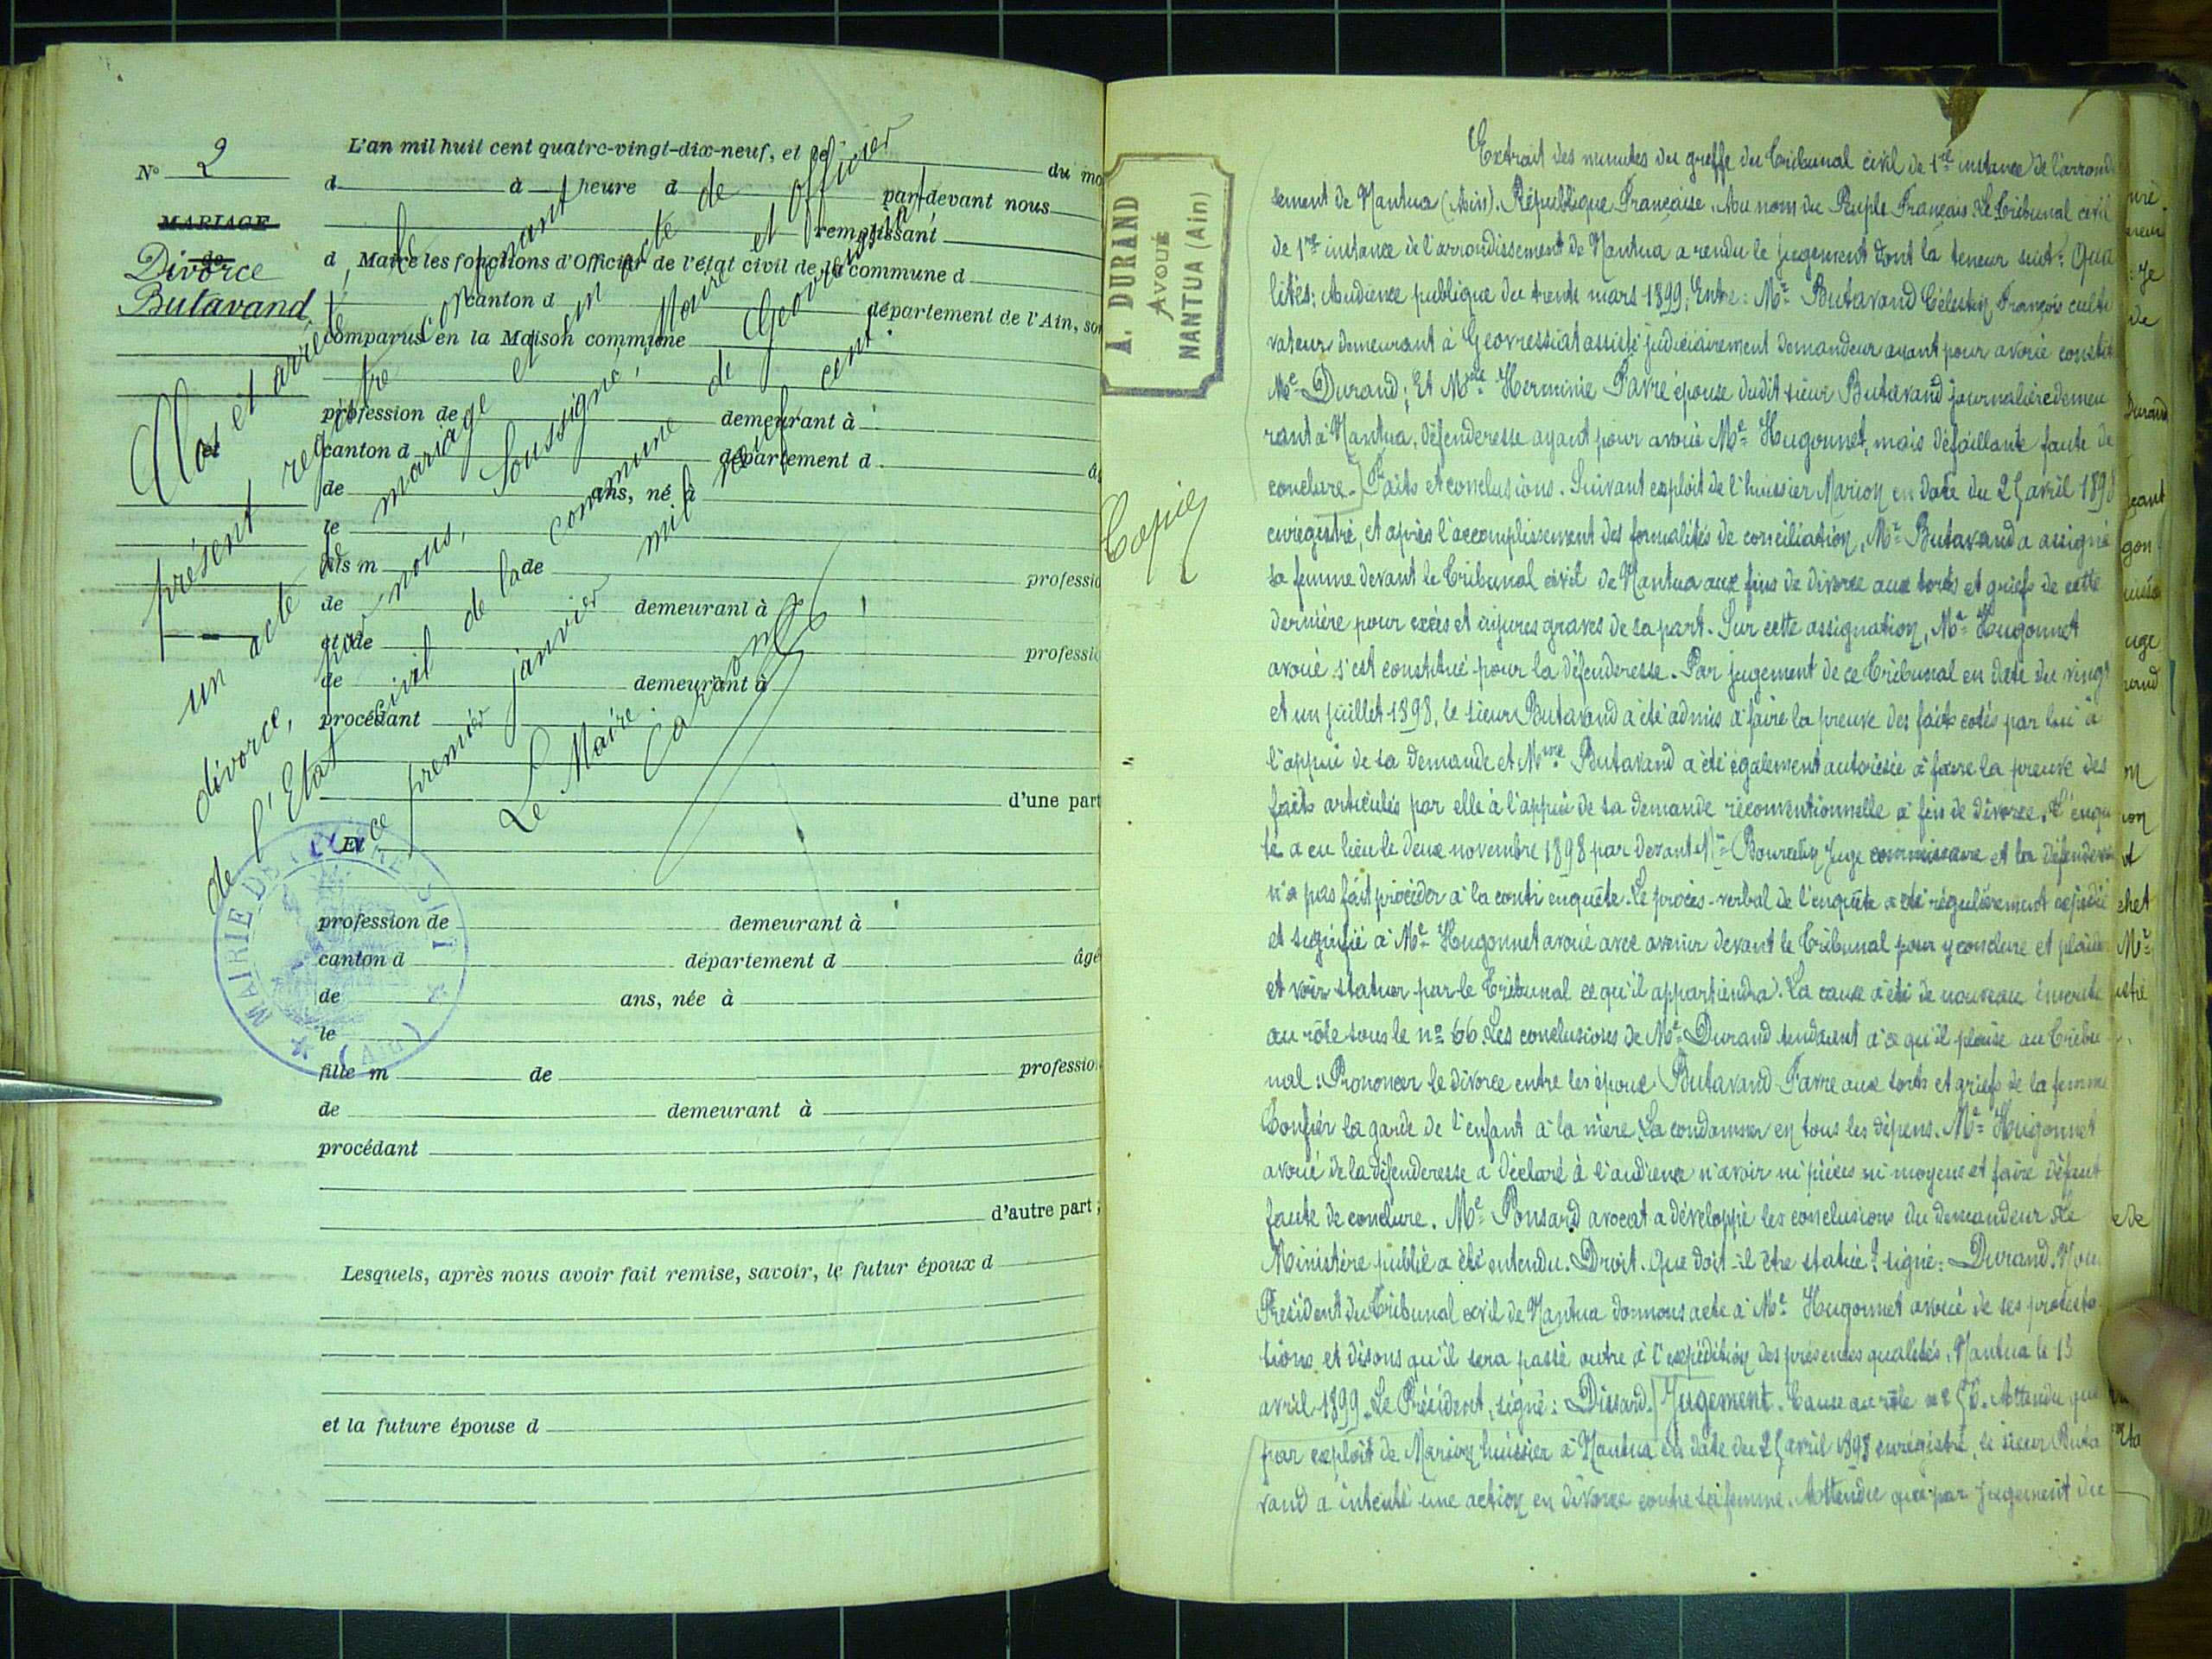 N° 2
MARIAGE
de
Divorce
Butavand
et
L'an mil huit cent quatre-vingt-dix-neuf, et le du mo
d à heure d par-devant nous
remplissant
d Maire les fonctions d'Officier de l'état civil de la commune d
canton d département de l'Ain, son
comparus en la Maison commune
profession de demeurant à
canton d département d â
de ans, né à
le
fils m de professio
de demeurant à
et de professio
de demeurant à
procédant
d'une part
Et
profession de demeurant à
canton d département d âgé
de ans, née à
le
fille m de profession
de demeurant à
procédant
d'autre part ;
Lesquels, après nous avoir fait remise, savoir, le futur époux d
et la future épouse d
Clos et arrêté, le
présent registre contenant
un acte de mariage et un acte de
divorce, par nous, soussigné, Maire et officier
de l'Etat civil de la commune de Geovressiat
ce premier janvier mil neuf cent.
Le Maire.
Carrom
MAIRIE DE GEOVRESSIAT
(Ain)
A. DURAND
AVOUÉ
NANTUA (Ain)
Copie
Extrait des minutes du greffe du Tribunal civil de 1re instance de l'arrond
sement de Nantua (Ain). République Française. Au nom du Peuple Français Le Tribunal civil
de 1re instance de l'arrondissement de Nantua a rendu le jugement dont la teneur suit: Qua
lités: Audience publique du trente mars 1899; Entre: Mr Butavand Célestin François culti
vateur demeurant à Geovressiat assisté judiciairement demandeur ayant pour avoué constit
Me Durand; Et Mme Herminie Favre épouse dudit sieur Butavand journalière demeu
rant à Nantua, défenderesse ayant pour avoué Me Hugonnet, mais défaillante faute de
conclure. Faits et conclusions. Suivant exploit de l'huissier Marion en date du 25 avril 1898
enregistré, et après l'accomplissement des formalités de conciliation, Mr Butavand a assigné
sa femme devant le Tribunal civil de Nantua aux fins de divorce aux torts et griefs de cette
dernière pour excès et injures graves de sa part. Sur cette assignation, Me Hugonnet
avoué s'est constitué pour la défenderesse. Par jugement de ce Tribunal en date du vingt
et un juillet 1898, le sieur Butavand a été admis à faire la preuve des faits cotés par lui à
l'appui de sa demande et Mme Butavand a été également autorisée à faire la preuve des
faits articulés par elle à l'appui de sa demande reconventionnelle à fin de divorce. L'enqu
te a eu lieu le deux novembre 1898 par devant Mr Bourdin Juge commissaire et la défenderes
n'a pas fait procéder à la contre enquête. Le procès-verbal de l'enquête a été régulièrement expédié
et signifié à Me Hugonnet avoué avec avenir devant le Tribunal pour y conclure et plaider
et voir statuer par le Tribunal ce qu'il appartiendra. La cause a été de nouveau inscrite
au rôle sous le n° 66. Les conclusions de Me Durand tendaient à ce qu'il plaise au Tribu
nal: Prononcer le divorce entre les époux Butavand Favre aux torts et griefs de la femme
Confier la garde de l'enfant à la mère La condamner en tous les dépens. Me Hugonnet
avoué de la défenderesse a déclaré à l'audience n'avoir ni pièces ni moyens et faire défaut
faute de conclure. Me Ponsard avocat a développé les conclusions du demandeur Le
Ministère public a été entendu. Droit. Que doit-il être statué? signé: Durand. Nou
Président du Tribunal civil de Nantua donnons acte à Me Hugonnet avoué de ses protesta
tions et disons qu'il sera passé outre à l'expédition des présentes qualités. Nantua le 13
avril 1899. Le Président, signé: Dissard. Jugement. Cause au rôle n° 56. Attendu que
par exploit de Marion huissier à Nantua en date du 25 avril 1898 enregistré, le sieur Buta
vand a intenté une action en divorce contre sa femme. Attendu que par jugement du